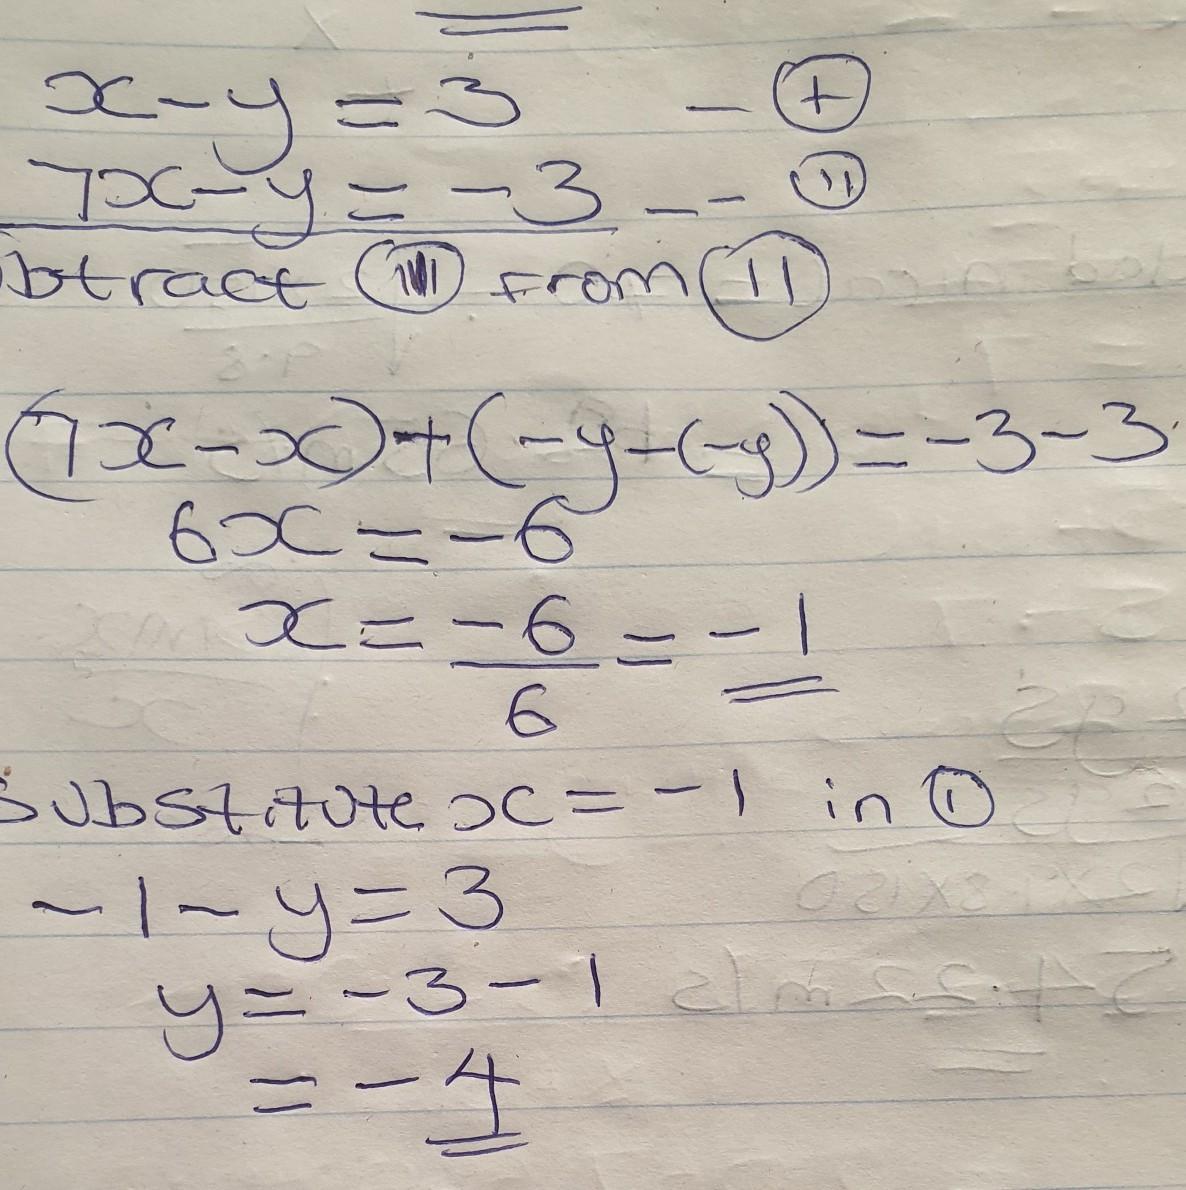 x - y = 3 - (+)
7x - y = -3 -- (11)
btract from (11)
(7x - x) + (-y - (-y)) = -3 - 3
6x = -6
x = -6/6 = -1
Substitute x = -1 in (1)
-1 - y = 3
y = -3 - 1
= -4